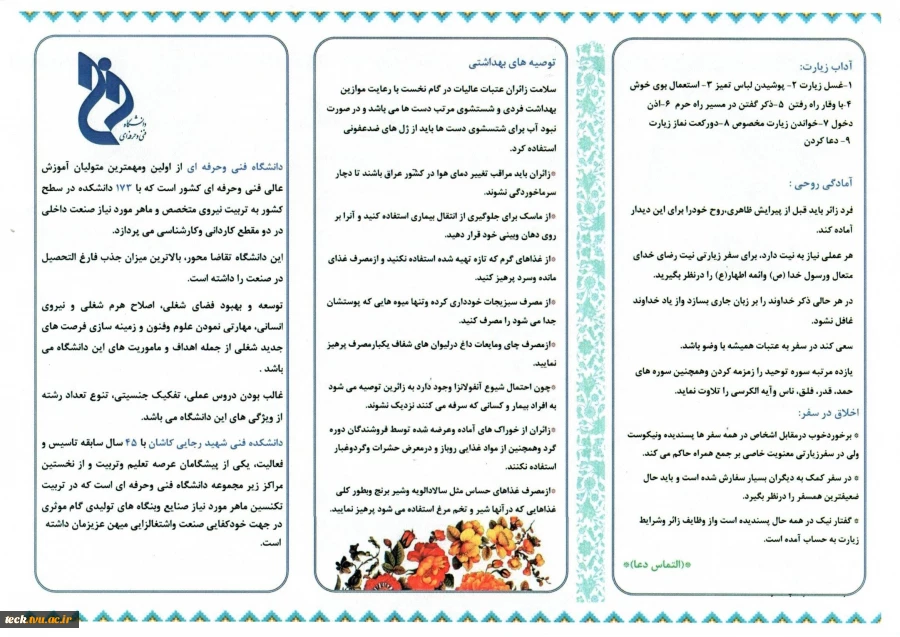 آداب زیارت:
۱-غسل زیارت ۲- پوشیدن لباس تمیز ۳- استعمال بوی خوش
۴-با وقار راه رفتن ۵-ذکر گفتن در مسیر راه حرم ۶-اذن
دخول ۷-خواندن زیارت مخصوص ۸-دورکعت نماز زیارت
۹- دعا کردن
آمادگی روحی :
فرد زائر باید قبل از پیرایش ظاهری،روح خودرا برای این دیدار
آماده کند.
هر عملی نیاز به نیت دارد، برای سفر زیارتی نیت رضای خدای
متعال ورسول خدا (ص) وائمه اطهار(ع) را درنظر بگیرید.
در هر حالی ذکر خداوند را بر زبان جاری بسازد واز یاد خداوند
غافل نشود.
سعی کند در سفر به عتبات همیشه با وضو باشد.
یازده مرتبه سوره توحید را زمزمه کردن وهمچنین سوره های
حمد، قدر، فلق، ناس وآیه الکرسی را تلاوت نماید.
اخلاق در سفر:
* برخوردخوب درمقابل اشخاص در همه سفر ها پسندیده ونیکوست
ولی در سفرزیارتی معنویت خاصی بر جمع همراه حاکم می کند.
* در سفر کمک به دیگران بسیار سفارش شده است و باید حال
ضعیفترین همسفر را درنظر بگیرد.
* گفتار نیک در همه حال پسندیده است واز وظایف زائر وشرایط
زیارت به حساب آمده است.
*(التماس دعا)*
توصیه های بهداشتی
سلامت زائران عتبات عالیات در گام نخست با رعایت موازین
بهداشت فردی و شستشوی مرتب دست ها می باشد و در صورت
نبود آب برای شتسشوی دست ها باید از ژل های ضدعفونی
استفاده کرد.
*زائران باید مراقب تغییر دمای هوا در کشور عراق باشند تا دچار
سرماخوردگی نشوند.
*از ماسک برای جلوگیری از انتقال بیماری استفاده کنید و آنرا بر
روی دهان وبینی خود قرار دهید.
*از غذاهای گرم که تازه تهیه شده استفاده نکنید و ازمصرف غذای
مانده وسرد پرهیز کنید.
*از مصرف سبزیجات خودداری کرده وتنها میوه هایی که پوستشان
جدا می شود را مصرف کنید.
*ازمصرف چای ومایعات داغ درلیوان های شفاف یکبارمصرف پرهیز
نمایید.
*چون احتمال شیوع آنفولانزا وجود دارد به زائرین توصیه می شود
به افراد بیمار و کسانی که سرفه می کنند نزدیک نشوند.
*زائران از خوراک های آماده وعرضه شده توسط فروشندگان دوره
گرد وهمچنین از مواد غذایی روباز و درمعرض حشرات وگردوغبار
استفاده نکنند.
*ازمصرف غذاهای حساس مثل سالادالویه وشیر برنج وبطور کلی
غذاهایی که درآنها شیر و تخم مرغ استفاده می شود پرهیز نمایید.
دانشگاه
فنی و حرفه‌ای
دانشگاه فنی وحرفه ای از اولین ومهمترین متولیان آموزش
عالی فنی وحرفه ای کشور است که با ۱۷۳ دانشکده در سطح
کشور به تربیت نیروی متخصص و ماهر مورد نیاز صنعت داخلی
در دو مقطع کاردانی وکارشناسی می پردازد.
این دانشگاه تقاضا محور، بالاترین میزان جذب فارغ التحصیل
در صنعت را داشته است.
توسعه و بهبود فضای شغلی، اصلاح هرم شغلی و نیروی
انسانی، مهارتی نمودن علوم وفنون و زمینه سازی فرصت های
جدید شغلی از جمله اهداف و ماموریت های این دانشگاه می
باشد .
غالب بودن دروس عملی، تفکیک جنسیتی، تنوع تعداد رشته
از ویژگی های این دانشگاه می باشد.
دانشکده فنی شهید رجایی کاشان با ۴۵ سال سابقه تاسیس و
فعالیت، یکی از پیشگامان عرصه تعلیم وتربیت و از نخستین
مراکز زیر مجموعه دانشگاه فنی وحرفه ای است که در تربیت
تکنسین ماهر مورد نیاز صنایع وبنگاه های تولیدی گام موثری
در جهت خودکفایی صنعت واشتغالزایی میهن عزیزمان داشته
است.
teck.tvu.ac.ir